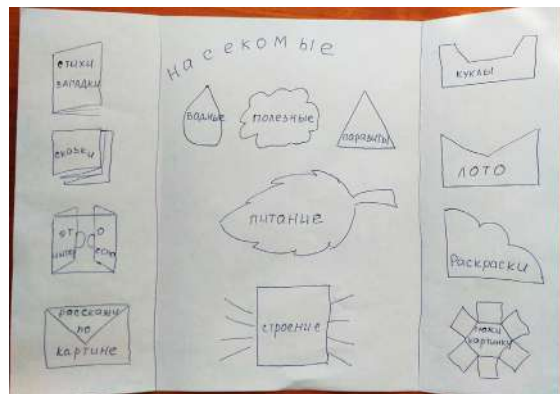 стихи
загадки
сказки
расскажи
по
картине
насекомые
водные
полезные
паразиты
питание
строение
куклы
лото
Раскраски
картинку